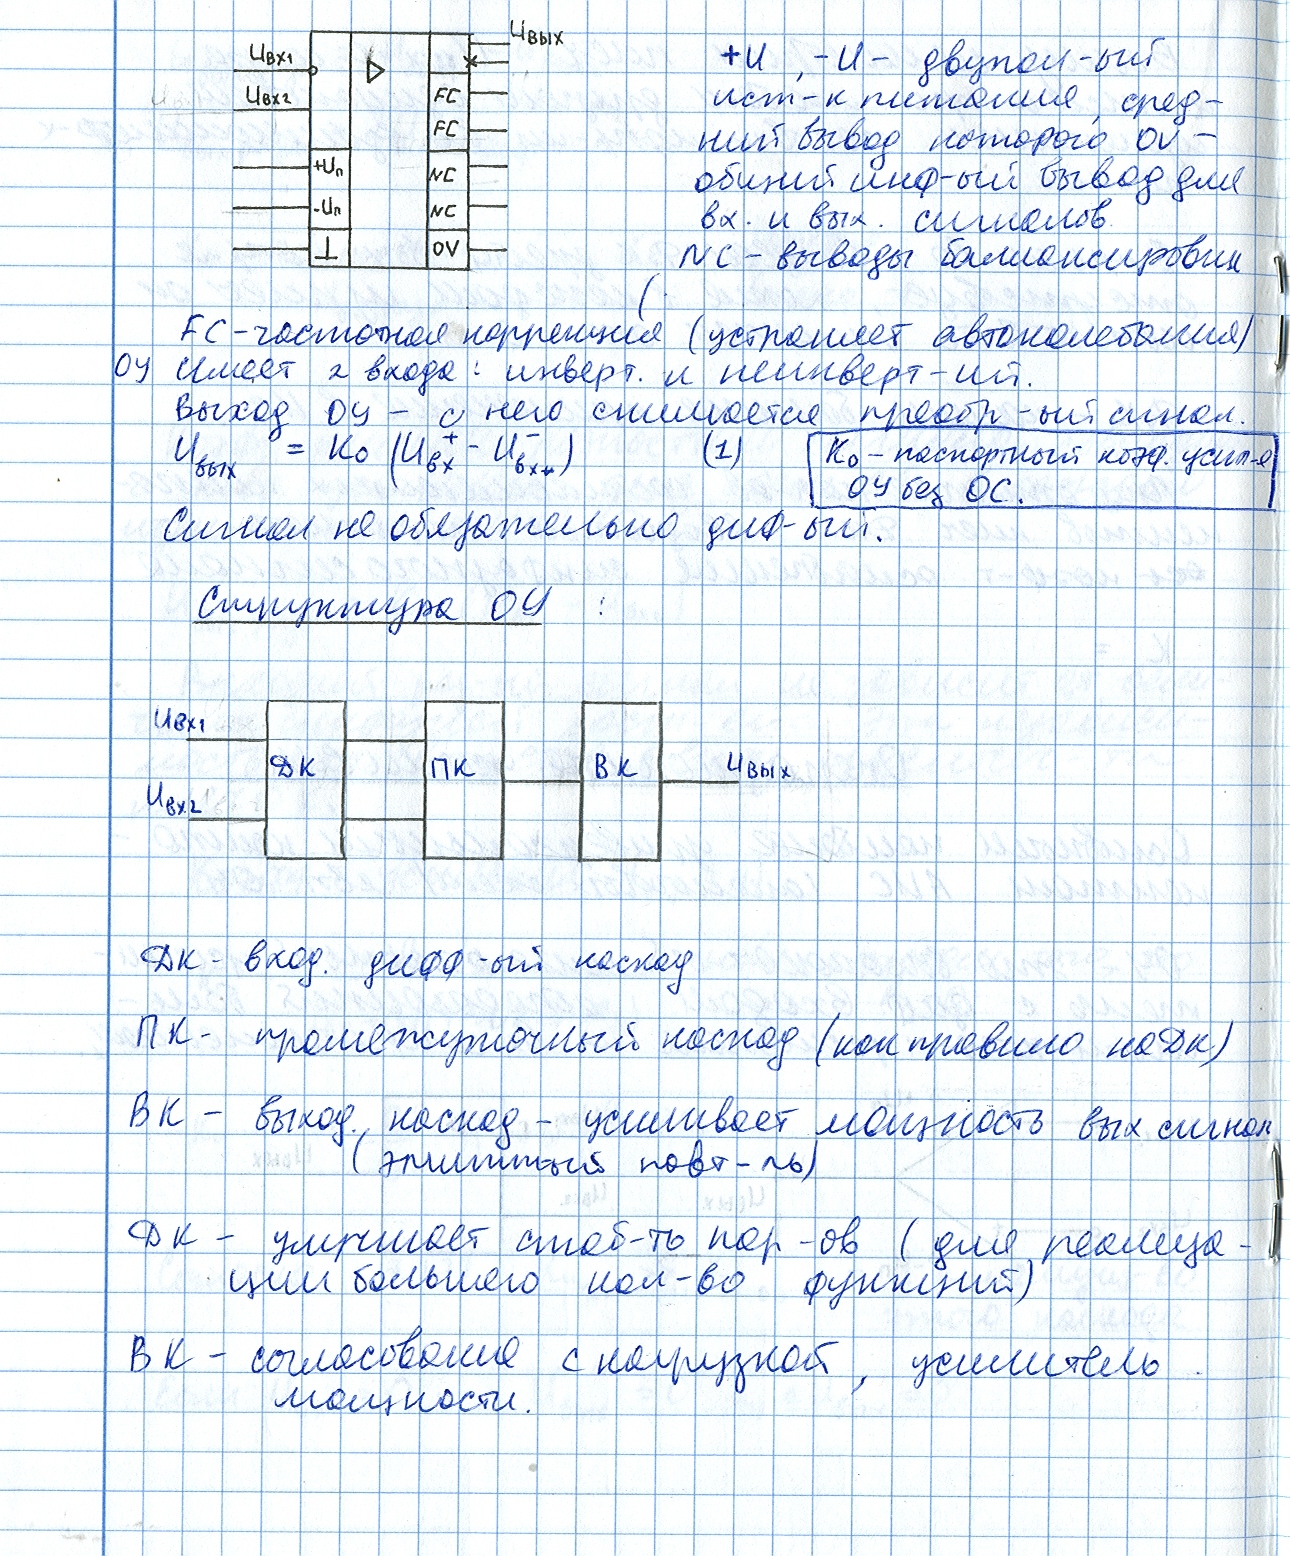 Uвх1
Uвх2
+Uп
-Uп
⊥
▷
FC
FC
NC
NC
OV
Uвых
+U, -U - двупол-ый
ист-к питания, сред-
ний вывод которого OV -
общий инф-ый вывод для
вх. и вых. сигналов.
NC - выводы балансировки
(
FC - частотная коррекция (устраняет автоколебания)
ОУ имеет 2 входа: инверт. и неинверт-ий.
Выход ОУ - с него снимается преобр-ый сигнал.
Uвых = K₀ (Uвх⁺ - Uвх⁻) (1)
K₀ - паспортный коэф. усил-я
ОУ без ОС.
Сигнал не обязательно диф-ый.
Структура ОУ :
Uвх1
Uвх2
ДК
ПК
ВК
Uвых
ДК - вход. дифф-ый каскад
ПК - промежуточный каскад (как правило на ДК)
ВК - выход. каскад - усиливает мощность вых сигнал
(эмиттный повт-ль)
ДК - улучшает стаб-ть пар-ов (для реализа-
ции большего кол-во функций)
ВК - согласование с нагрузкой, усилитель
мощности.